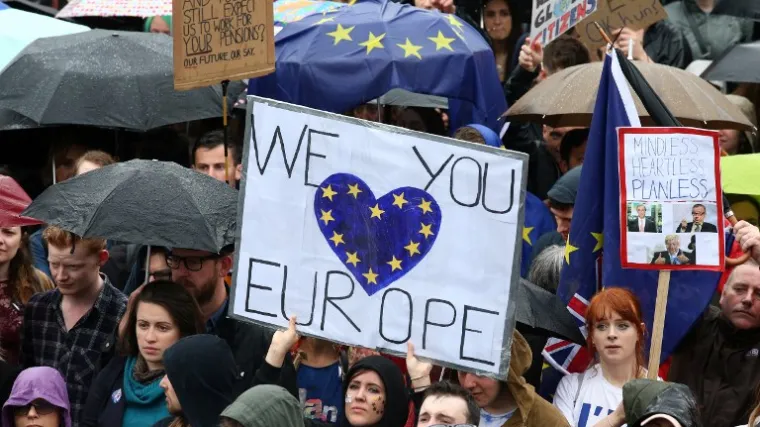 STILL EXPECT
US TO WORK FOR
YOUR PENSIONS?
OUR FUTURE, OUR SAY.
GLOBAL
CITIZENS
WE YOU
EUROPE
MINDLESS
HEARTLESS
PLANLESS